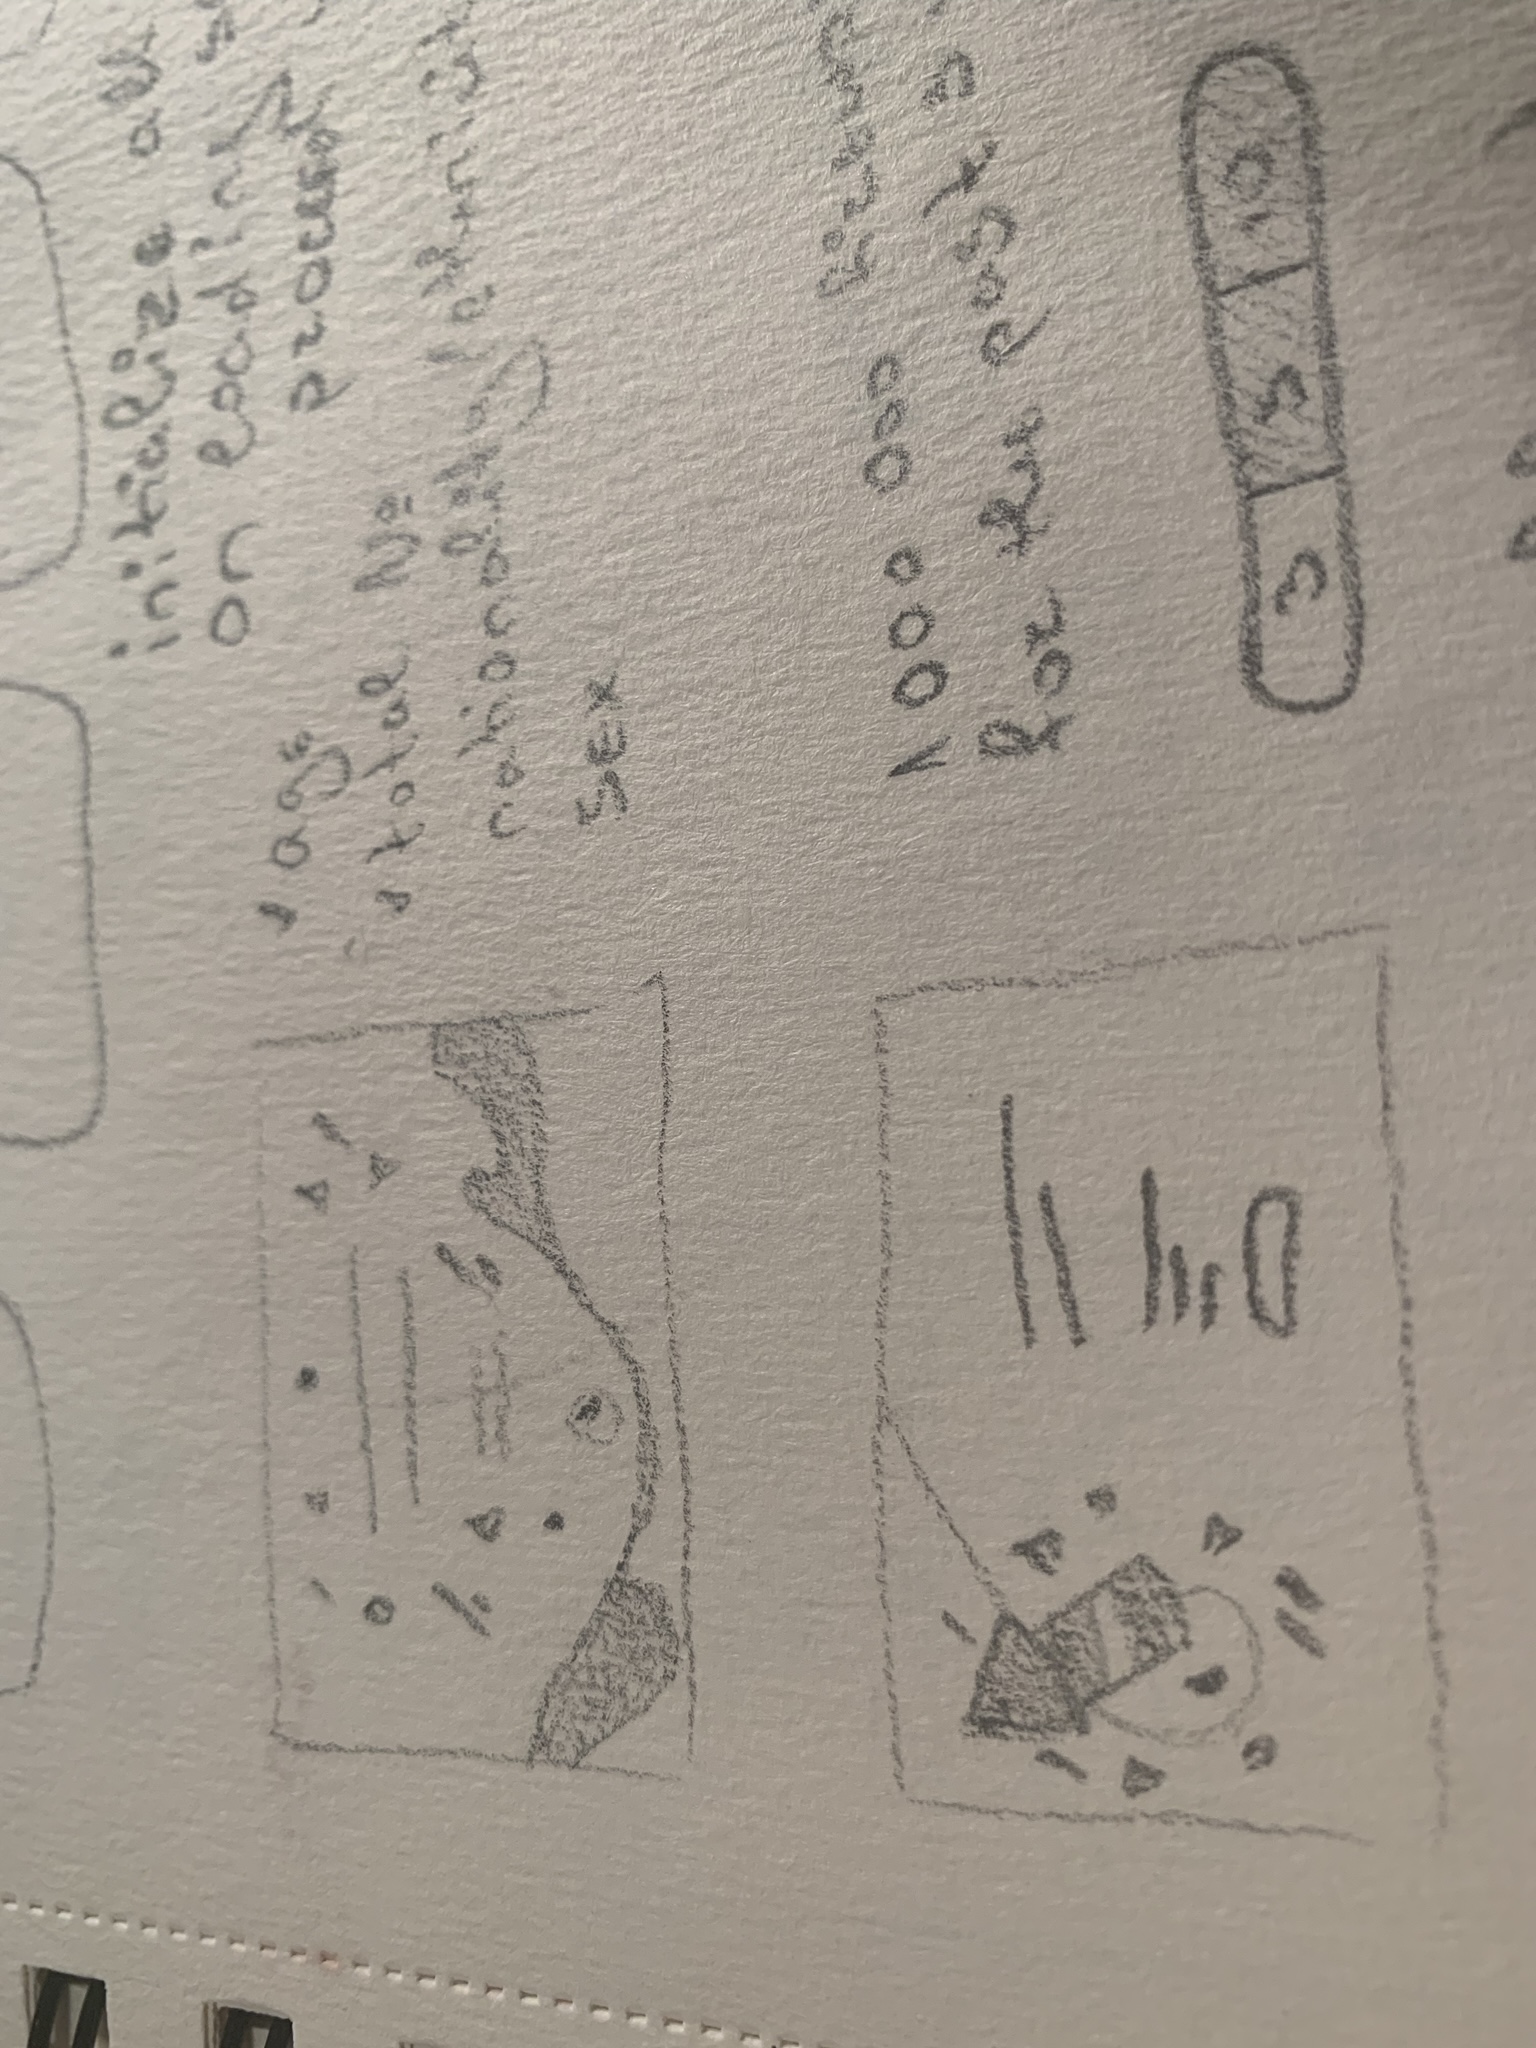 initialize all
on loading
process
age
total №
nationality/ethnicit
SEX
1 000 000
for the past 3
3 5 10